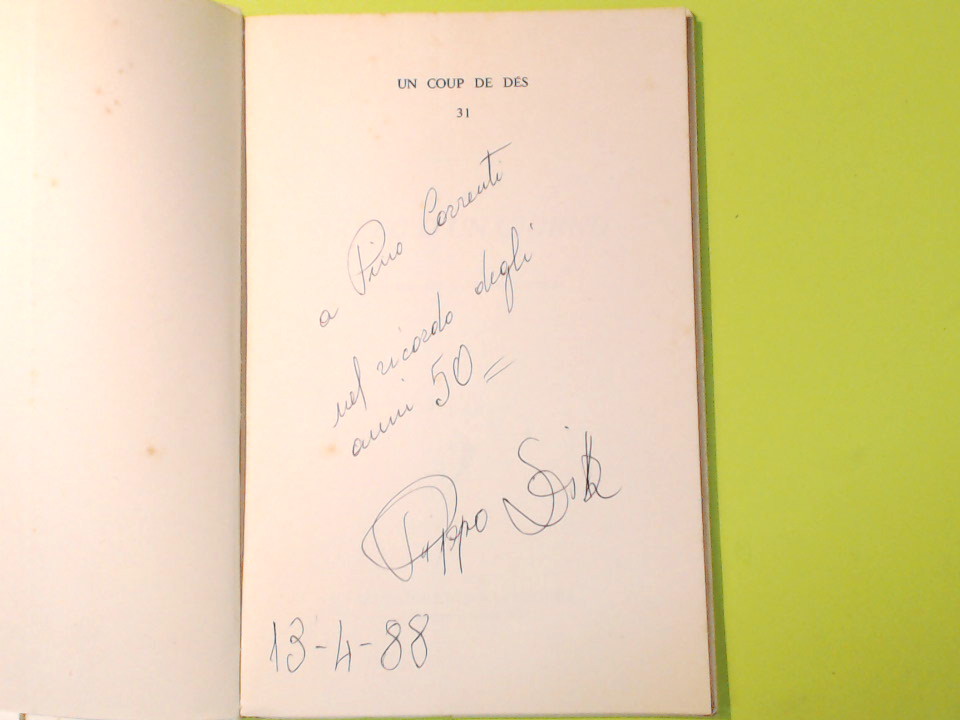 UN COUP DE DÉS
31
a Pino Correnti
nel ricordo degli
anni 50=
Pippo
13-4-88